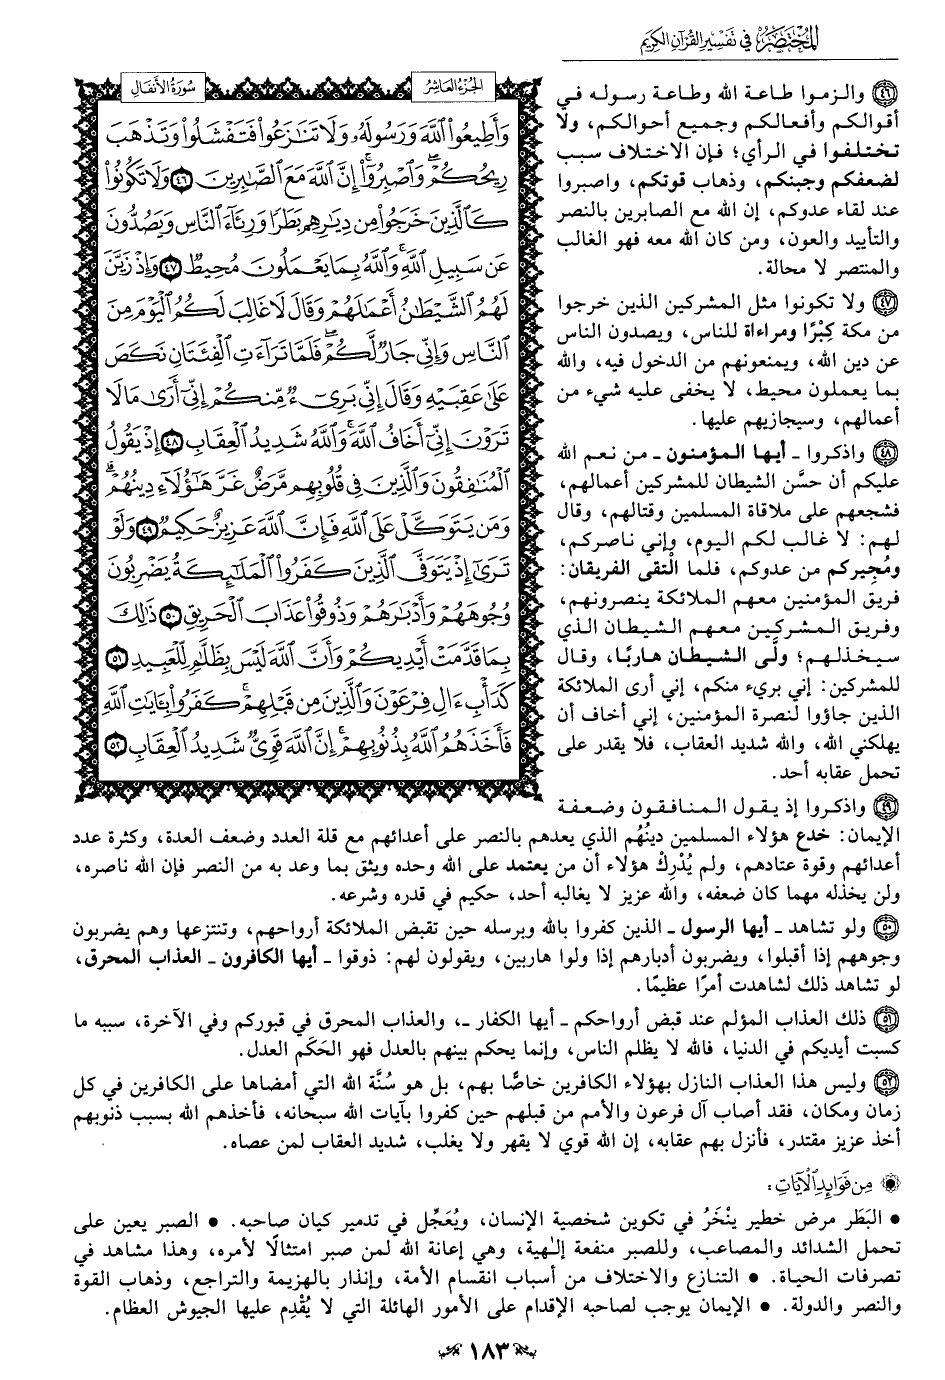 المختصر في تفسير القرآن الكريم
الجزء العاشر
سورة الأنفال
وَأَطِيعُوا۟ ٱللَّهَ وَرَسُولَهُۥ وَلَا تَنَـٰزَعُوا۟ فَتَفْشَلُوا۟ وَتَذْهَبَ
رِيحُكُمْ ۖ وَٱصْبِرُوٓا۟ ۚ إِنَّ ٱللَّهَ مَعَ ٱلصَّـٰبِرِينَ ٤٦ وَلَا تَكُونُوا۟
كَٱلَّذِينَ خَرَجُوا۟ مِن دِيَـٰرِهِم بَطَرًا وَرِئَآءَ ٱلنَّاسِ وَيَصُدُّونَ
عَن سَبِيلِ ٱللَّهِ ۚ وَٱللَّهُ بِمَا يَعْمَلُونَ مُحِيطٌ ٤٧ وَإِذْ زَيَّنَ
لَهُمُ ٱلشَّيْطَـٰنُ أَعْمَـٰلَهُمْ وَقَالَ لَا غَالِبَ لَكُمُ ٱلْيَوْمَ مِنَ
ٱلنَّاسِ وَإِنِّى جَارٌ لَّكُمْ ۖ فَلَمَّا تَرَآءَتِ ٱلْفِئَتَانِ نَكَصَ
عَلَىٰ عَقِبَيْهِ وَقَالَ إِنِّى بَرِىٓءٌ مِّنكُمْ إِنِّىٓ أَرَىٰ مَا لَا
تَرَوْنَ إِنِّىٓ أَخَافُ ٱللَّهَ ۚ وَٱللَّهُ شَدِيدُ ٱلْعِقَابِ ٤٨ إِذْ يَقُولُ
ٱلْمُنَـٰفِقُونَ وَٱلَّذِينَ فِى قُلُوبِهِم مَّرَضٌ غَرَّ هَـٰٓؤُلَآءِ دِينُهُمْ ۗ
وَمَن يَتَوَكَّلْ عَلَى ٱللَّهِ فَإِنَّ ٱللَّهَ عَزِيزٌ حَكِيمٌ ٤٩ وَلَوْ
تَرَىٰٓ إِذْ يَتَوَفَّى ٱلَّذِينَ كَفَرُوا۟ ۙ ٱلْمَلَـٰٓئِكَةُ يَضْرِبُونَ
وُجُوهَهُمْ وَأَدْبَـٰرَهُمْ وَذُوقُوا۟ عَذَابَ ٱلْحَرِيقِ ٥٠ ذَٰلِكَ
بِمَا قَدَّمَتْ أَيْدِيكُمْ وَأَنَّ ٱللَّهَ لَيْسَ بِظَلَّـٰمٍ لِّلْعَبِيدِ ٥١
كَدَأْبِ ءَالِ فِرْعَوْنَ وَٱلَّذِينَ مِن قَبْلِهِمْ ۚ كَفَرُوا۟ بِـَٔايَـٰتِ ٱللَّهِ
فَأَخَذَهُمُ ٱللَّهُ بِذُنُوبِهِمْ ۗ إِنَّ ٱللَّهَ قَوِىٌّ شَدِيدُ ٱلْعِقَابِ ٥٢
٤٦ والزموا طاعة الله وطاعة رسوله في
أقوالكم وأفعالكم وجميع أحوالكم، ولا
تختلفوا في الرأي؛ فإن الاختلاف سبب
لضعفكم وجبنكم، وذهاب قوتكم، واصبروا
عند لقاء عدوكم، إن الله مع الصابرين بالنصر
والتأييد والعون، ومن كان الله معه فهو الغالب
والمنتصر لا محالة.
٤٧ ولا تكونوا مثل المشركين الذين خرجوا
من مكة كِبْرًا ومراءاة للناس، ويصدون الناس
عن دين الله، ويمنعونهم من الدخول فيه، والله
بما يعملون محيط، لا يخفى عليه شيء من
أعمالهم، وسيجازيهم عليها.
٤٨ واذكروا - أيها المؤمنون - من نعم الله
عليكم أن حسَّن الشيطان للمشركين أعمالهم،
فشجعهم على ملاقاة المسلمين وقتالهم، وقال
لهم: لا غالب لكم اليوم، وإني ناصركم،
ومُجِيركم من عدوكم، فلما الْتقى الفريقان:
فريق المؤمنين معهم الملائكة ينصرونهم،
وفريق المشركين معهم الشيطان الذي
سيخذلهم؛ ولَّى الشيطان هاربًا، وقال
للمشركين: إني بريء منكم، إني أرى الملائكة
الذين جاؤوا لنصرة المؤمنين، إني أخاف أن
يهلكني الله، والله شديد العقاب، فلا يقدر على
تحمل عقابه أحد.
٤٩ واذكروا إذ يقول المنافقون وضعفة
الإيمان: خدع هؤلاء المسلمين دينُهُم الذي يعدهم بالنصر على أعدائهم مع قلة العدد وضعف العدة، وكثرة عدد
أعدائهم وقوة عتادهم، ولم يُدْرِكْ هؤلاء أن من يعتمد على الله وحده ويثق بما وعد به من النصر فإن الله ناصره،
ولن يخذله مهما كان ضعفه، والله عزيز لا يغالبه أحد، حكيم في قدره وشرعه.
٥٠ ولو تشاهد - أيها الرسول - الذين كفروا بالله وبرسله حين تقبض الملائكة أرواحهم، وتنتزعها وهم يضربون
وجوههم إذا أقبلوا، ويضربون أدبارهم إذا ولوا هاربين، ويقولون لهم: ذوقوا - أيها الكافرون - العذاب المحرق،
لو تشاهد ذلك لشاهدت أمرًا عظيمًا.
٥١ ذلك العذاب المؤلم عند قبض أرواحكم - أيها الكفار -، والعذاب المحرق في قبوركم وفي الآخرة، سببه ما
كسبت أيديكم في الدنيا، فالله لا يظلم الناس، وإنما يحكم بينهم بالعدل فهو الحَكَم العدل.
٥٢ وليس هذا العذاب النازل بهؤلاء الكافرين خاصًّا بهم، بل هو سُنَّة الله التي أمضاها على الكافرين في كل
زمان ومكان، فقد أصاب آل فرعون والأمم من قبلهم حين كفروا بآيات الله سبحانه، فأخذهم الله بسبب ذنوبهم
أخذ عزيز مقتدر، فأنزل بهم عقابه، إن الله قوي لا يقهر ولا يغلب، شديد العقاب لمن عصاه.
من فوائد الآيات:
• البَطَر مرض خطير ينْخَرُ في تكوين شخصية الإنسان، ويُعَجِّل في تدمير كيان صاحبه. • الصبر يعين على
تحمل الشدائد والمصاعب، وللصبر منفعة إلٰهية، وهي إعانة الله لمن صبر امتثالًا لأمره، وهذا مشاهد في
تصرفات الحياة. • التنازع والاختلاف من أسباب انقسام الأمة، وإنذار بالهزيمة والتراجع، وذهاب القوة
والنصر والدولة. • الإيمان يوجب لصاحبه الإقدام على الأمور الهائلة التي لا يُقْدِم عليها الجيوش العظام.
١٨٣